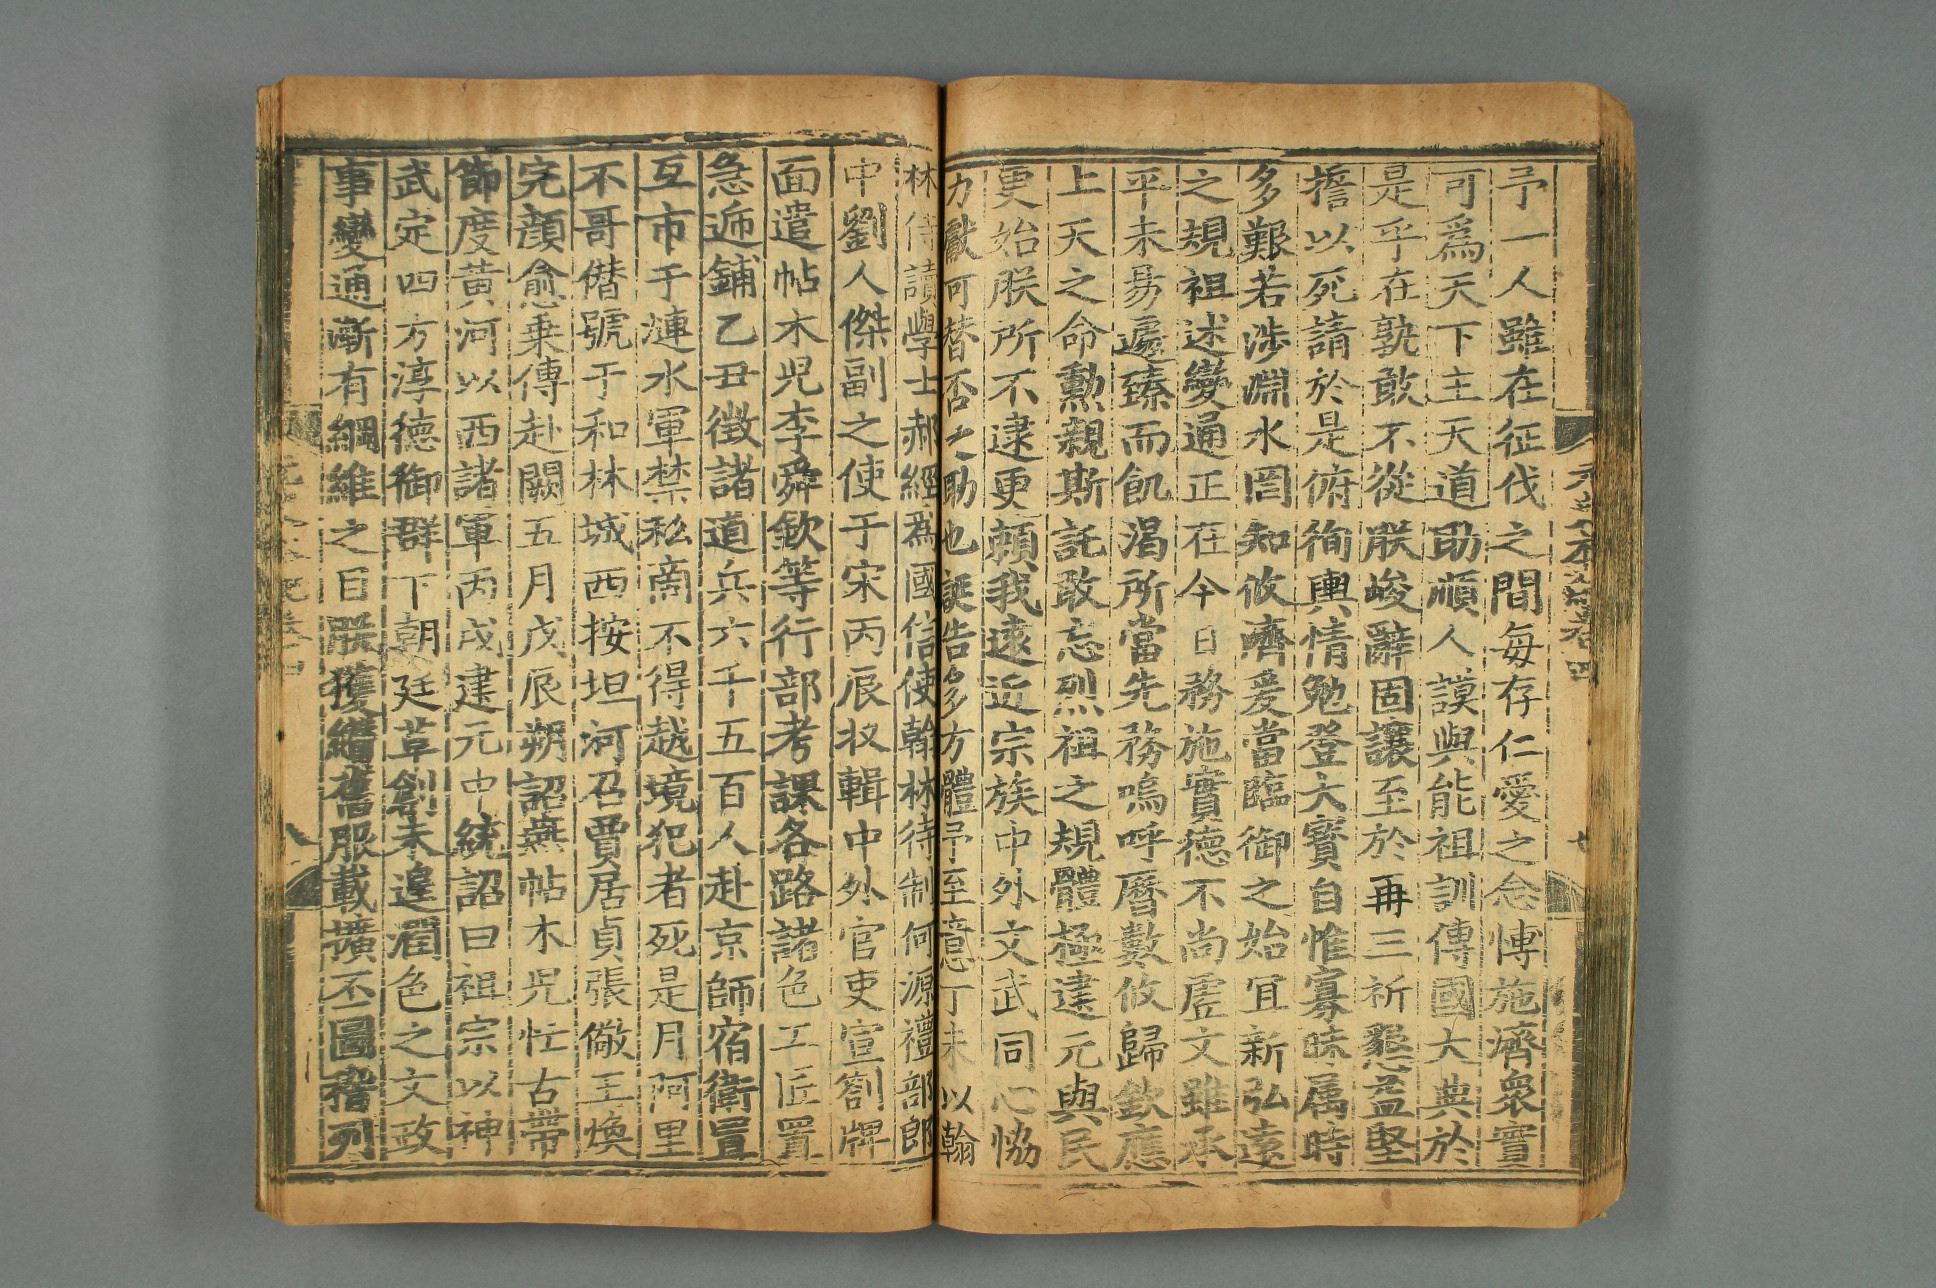 予一人雖在征伐之間每存仁愛之念愽施濟衆實
可爲天下主天道助順人謨與能祖訓傳國大典於
是乎在孰敢不從朕峻辭固讓至於再三祈懇益堅
擔以死請於是俯徇輿情勉登大寶自惟寡昧属時
多艱若涉淵水罔知攸濟爰當臨御之始宜新弘遠
之規祖述變通正在今日務施實德不尚虛文雖承
平未昜遽臻而飢渴所當先務嗚呼曆數攸歸欽應
上天之命勲親斯託敢忘烈祖之規體極建元與民
更始朕所不逮更頼我遠近宗族中外文武同心恊
力獻可替否之助也誕告多方體予至意丁未以翰
林侍讀學士郝經爲國信使翰林待制何源禮部郎
中劉人傑副之使于宋丙辰收輯中外官吏宣劄牌
面遣帖木児李舜欽等行部考課各路諸色工匠置
急逓鋪乙丑徴諸道兵六千五百人赴京師宿衛置
互市于漣水軍禁私啇不得越境犯者死是月阿里
不哥僭號于和林城西按坦河召賈居貞張儆王煥
完顔愈乗傳赴闕五月戊辰朔詔燕帖木児忙古帶
節度黄河以西諸軍丙戌建元中統詔曰祖宗以神
武定四方淳德御群下朝廷草創未遑潤色之文政
事變通漸有綱維之目朕獲纘舊服載擴丕圖稽列